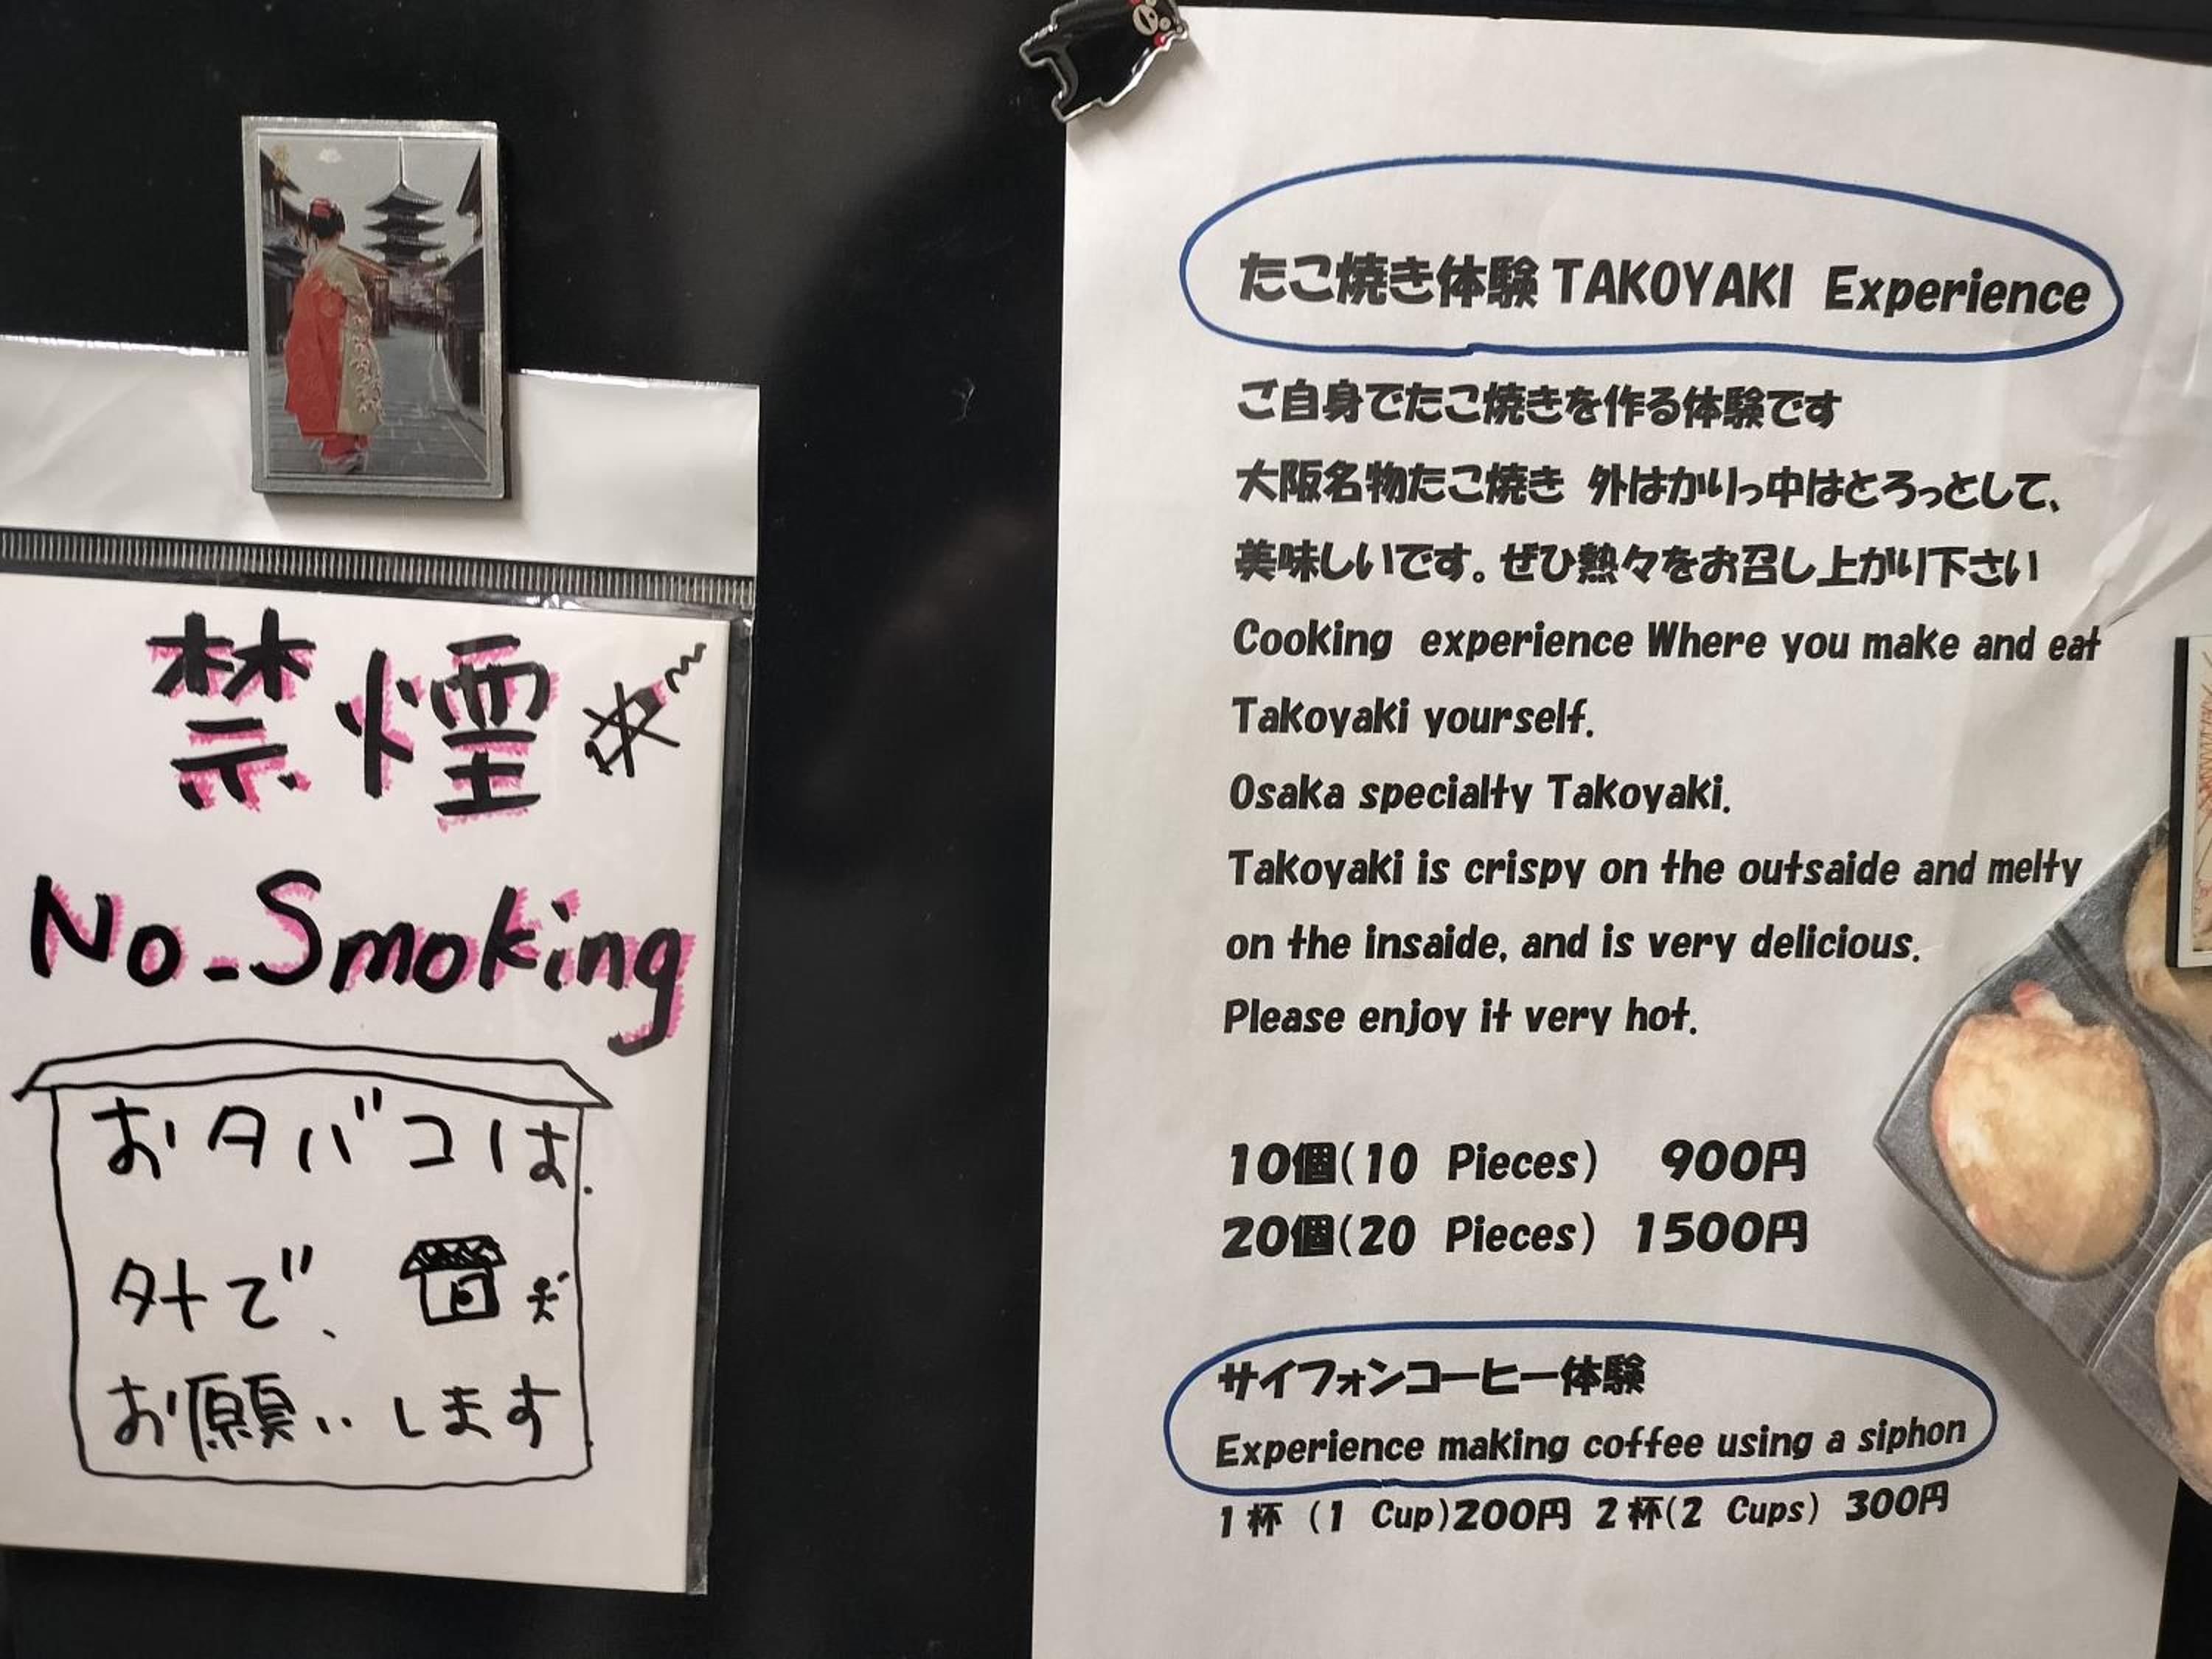 禁煙
No-Smoking
おタバコは
外で、
お願いします
たこ焼き体験 TAKOYAKI Experience
ご自身でたこ焼きを作る体験です
大阪名物たこ焼き 外はかりっ中はとろっとして、
美味しいです。ぜひ熱々をお召し上がり下さい
Cooking experience Where you make and eat
Takoyaki yourself.
Osaka specialty Takoyaki.
Takoyaki is crispy on the outsaide and melty
on the insaide, and is very delicious.
Please enjoy it very hot.
10個(10 Pieces) 900円
20個(20 Pieces) 1500円
サイフォンコーヒー体験
Experience making coffee using a siphon
1杯 (1 Cup)200円 2杯(2 Cups) 300円